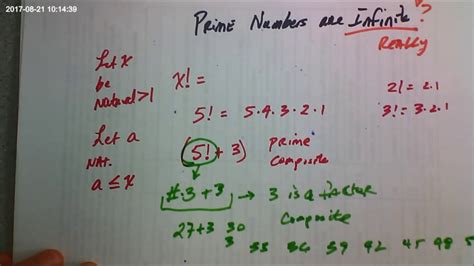 2017-08-21 10:14:39
Prime Numbers are Infinite?
Really
Let x
be
Natural>1
x! =
2! = 2·1
5! = 5·4·3·2·1
3! = 3·2·1
Let a
NAT.
a ≤ x
(5! + 3)
prime
composite
#·3 + 3 → 3 is a factor
composite
27+3 30
3 33 36 39 42 45 48 5